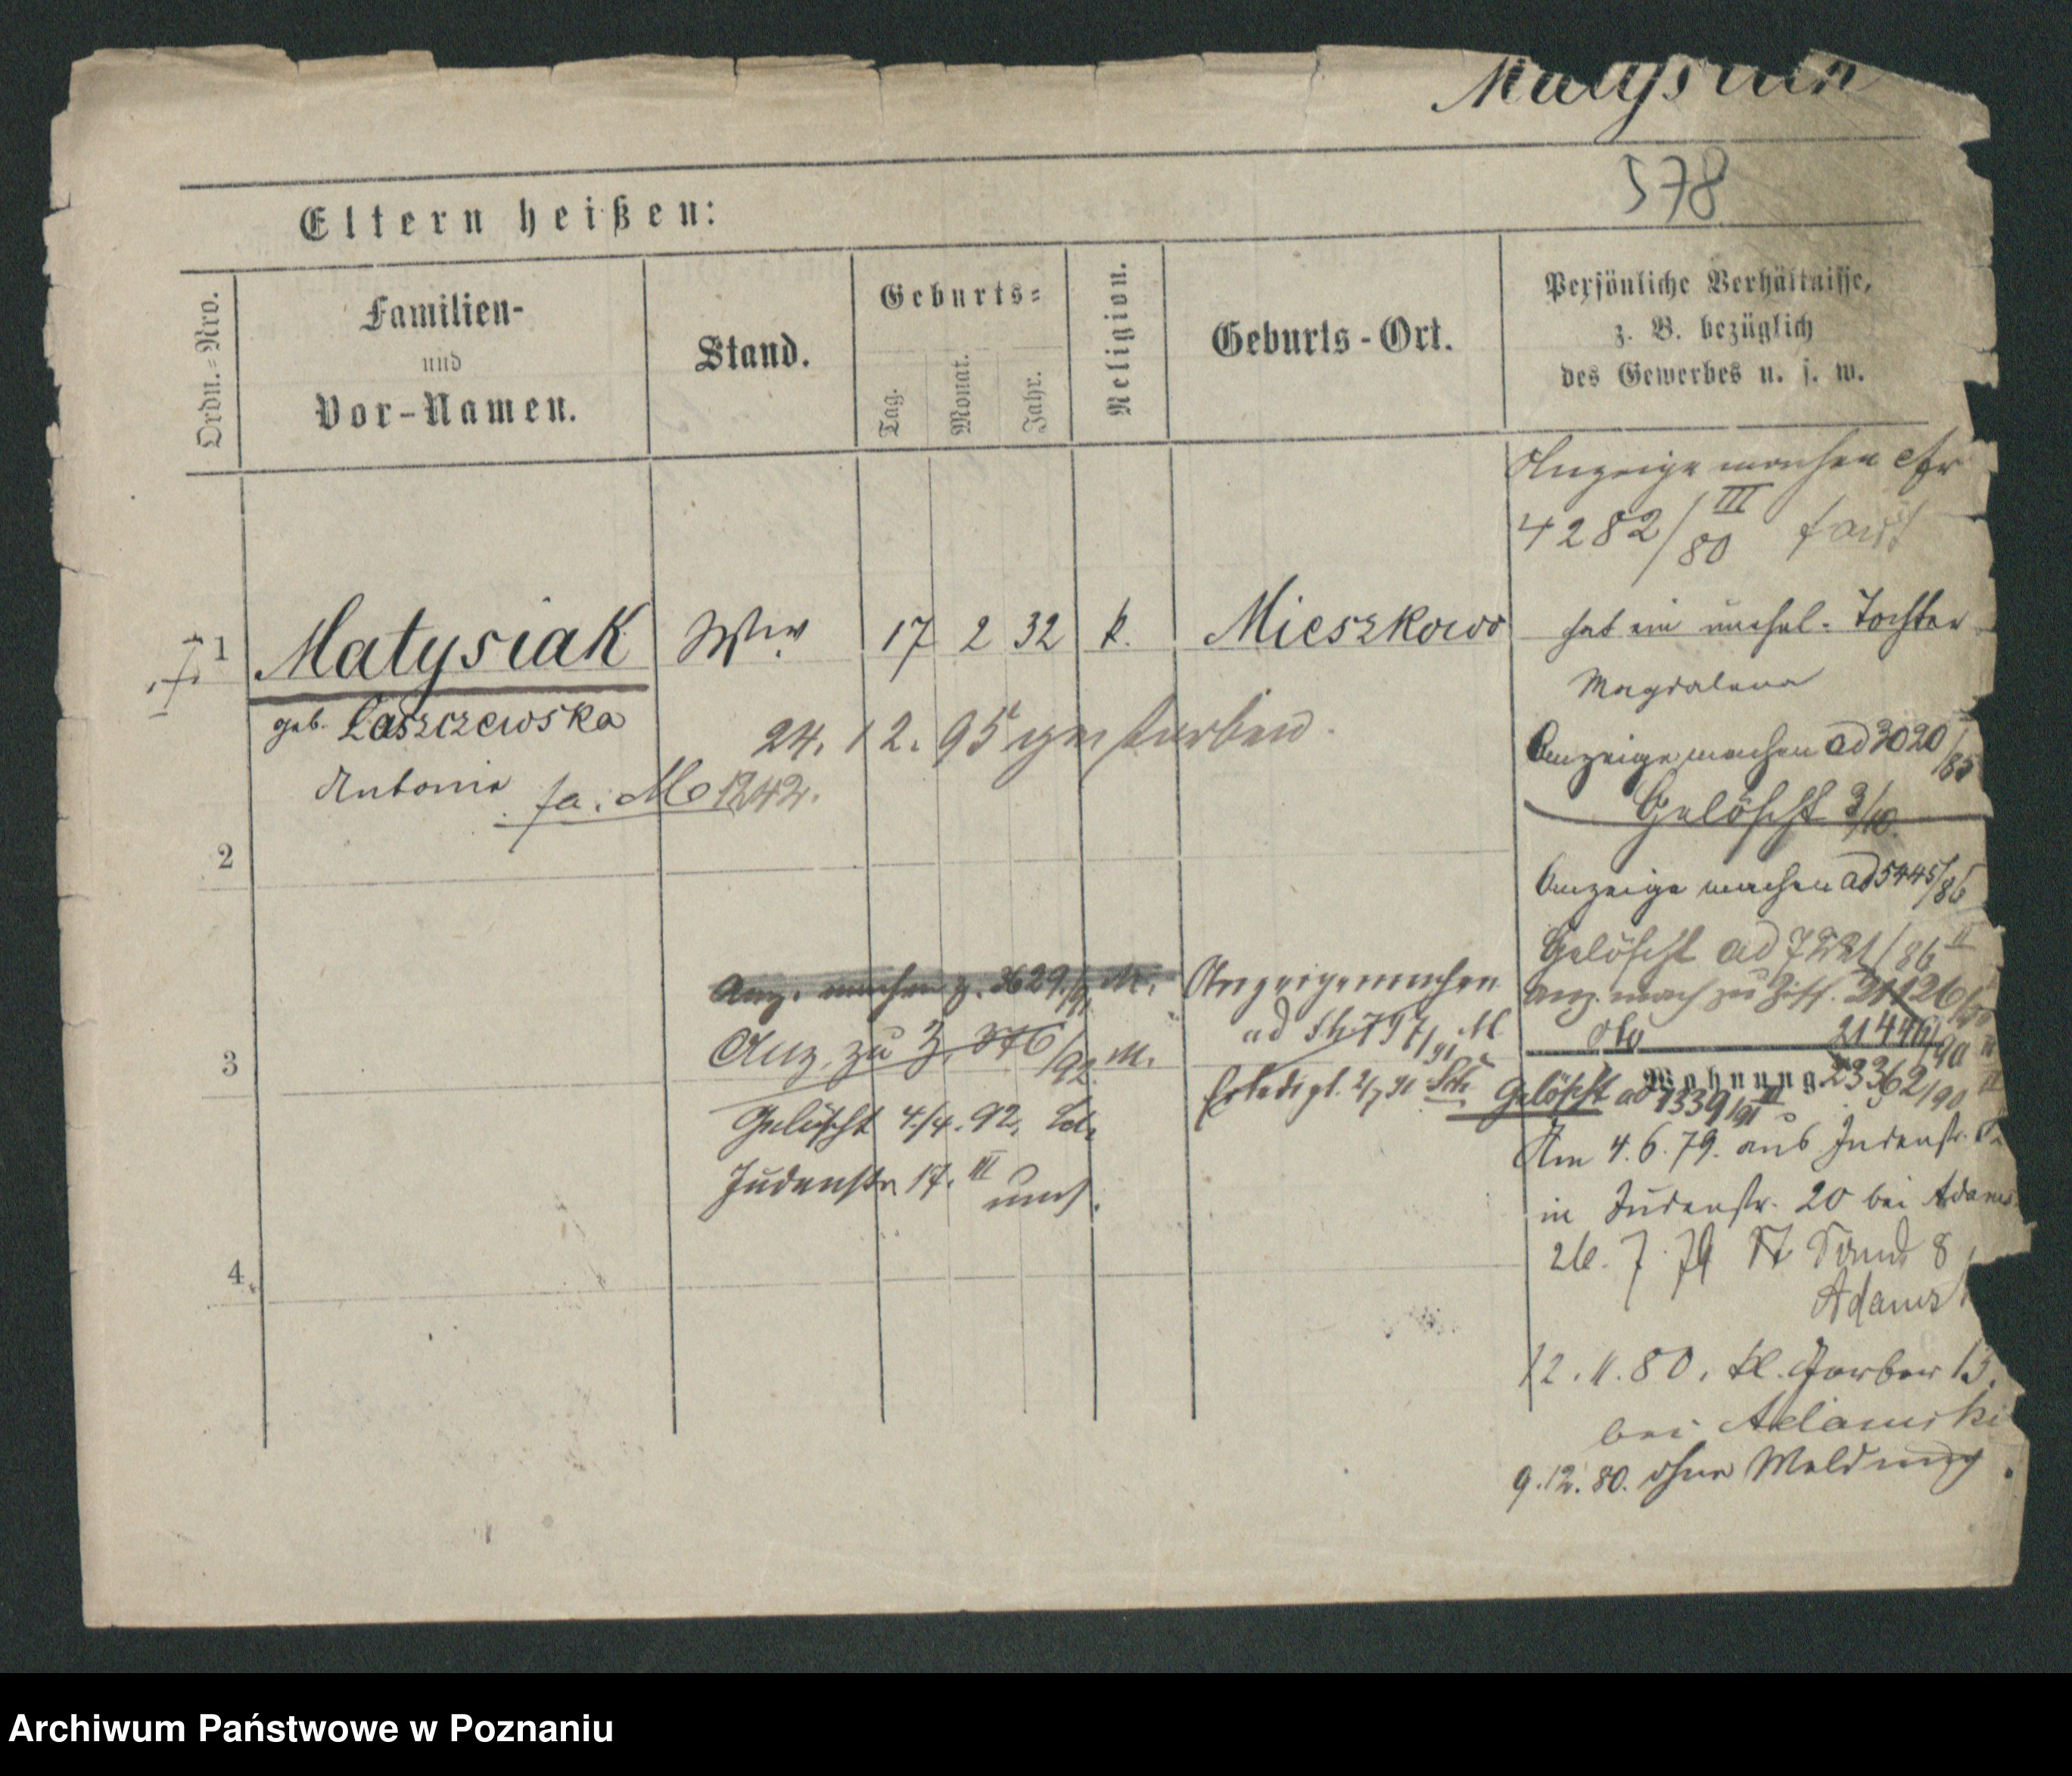 Matysiak
578
Eltern heißen:
Ordn.=Nro.
Familien-
und
Vor-Namen.
Stand.
Geburts=
Tag.
Monat.
Jahr.
Religion.
Geburts-Ort.
Persönliche Verhältnisse,
z. B. bezüglich
des Gewerbes u. s. w.
Anzeige machen cfr
4282/III 80
1 Matysiak Ww. 17 2 32 k. Mieszkowo
hat ein unehel. Tochter
Magdalena
geb. Laszczewska
24. 12. 95 gestorben.
Antonie fa: M 1242.
Anzeige machen ad 3020/85
Gelöscht 3/10.
2
Anzeige machen ad 5445/86
Gelöscht ad 7221/86 II
Anz. machen z. 3629/91 M.
Anzeige machen
Anz. mach zu
21446/90
Anz. zu Z. 376/92 M.
3
Erledigt. 2/7 91
Gelöscht ad 1339/91 III
Wohnung
23362/90
Gelöscht 4/4. 92.
Judenstr. 17. III
Am 4. 6. 79. aus Judenstr.
in Judenstr. 20 bei Adams
4
26. 7. 79 8
Adams
12. 11. 80. kl. Gerber 13.
bei Adamski
9. 12. 80. ohne Meldung.
Archiwum Państwowe w Poznaniu